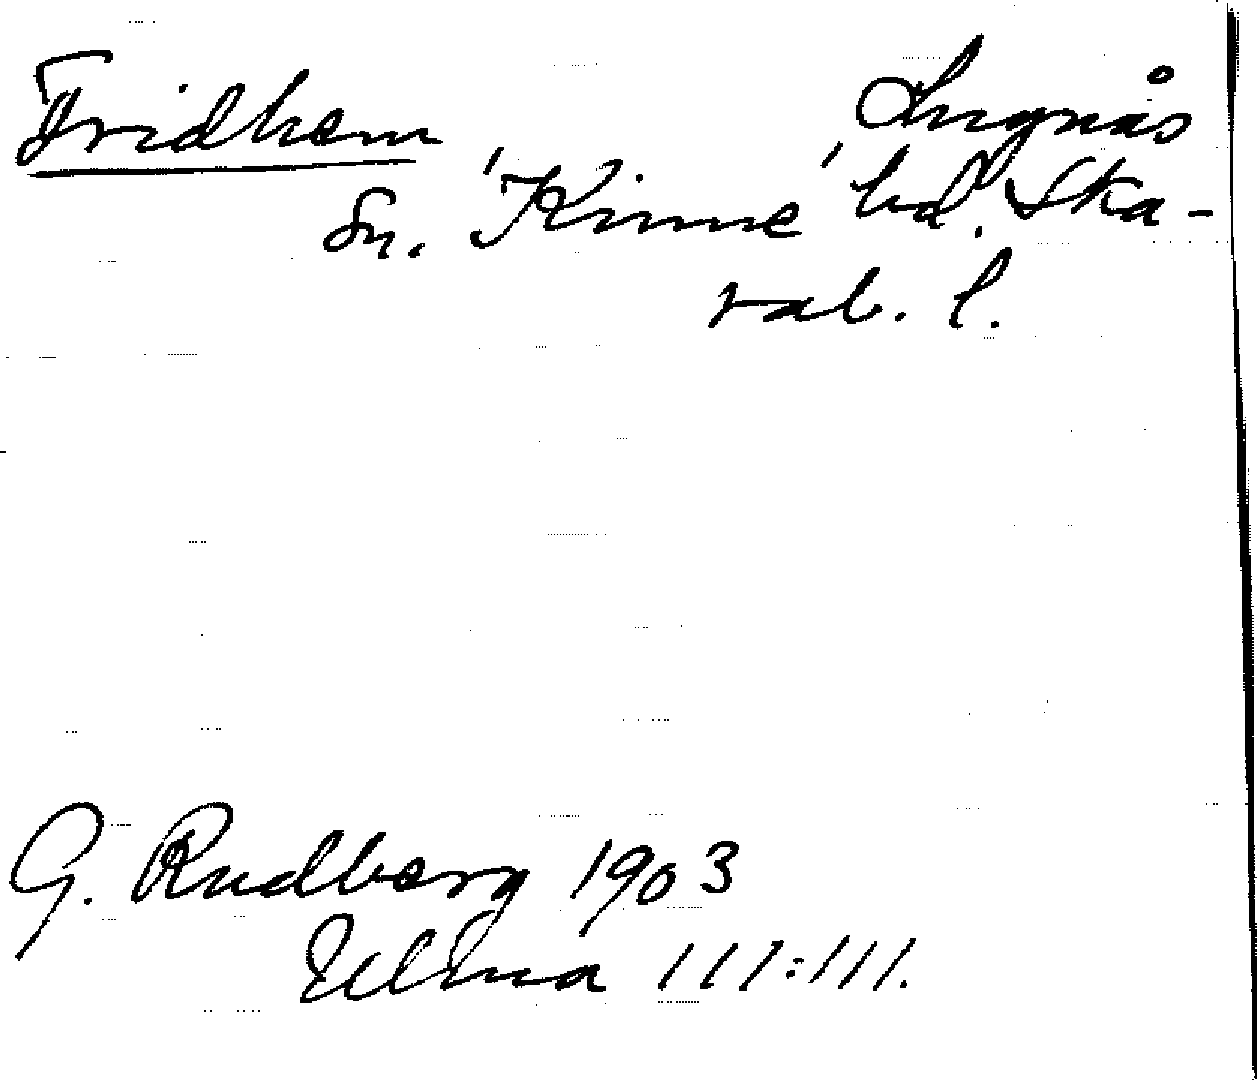 Fridhem Lugnås
sn. Kinne hd. Ska-
rab. l.
G. Rudberg 1903
Ulma 111:111.